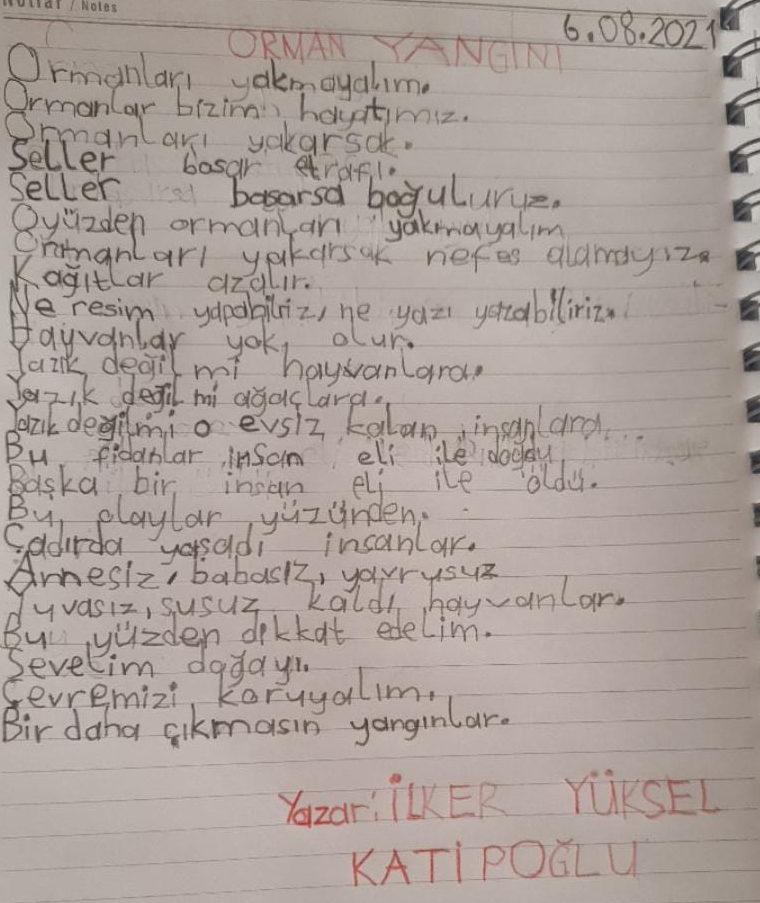 Notlar / Notes
6.08.2021
ORMAN YANGINI
Ormanları yakmayalım.
Ormanlar bizim hayatımız.
Ormanları yakarsak.
Seller basar etrafı.
Seller basarsa boğuluruz.
Oyüzden ormanları yakmayalım
Ormanları yakarsak nefes alamayız.
Kağıtlar azalır.
Ne resim yapabiliriz, ne yazı yazabiliriz.
Hayvanlar yok olur.
Yazık değil mi hayvanlara.
Yazık değil mi ağaçlara.
Yazık değilmi o evsiz kalan insanlara...
Bu fidanlar insan eli ile doğdu
Başka bir insan eli ile öldü.
Bu olaylar yüzünden.
Çadırda yaşadı insanlar.
Annesiz, babasız, yavrusuz
Yuvasız, susuz kaldı hayvanlar.
Bu yüzden dikkat edelim.
Sevelim doğayı.
Çevremizi koruyalım.
Bir daha çıkmasın yangınlar.
Yazar: İLKER YÜKSEL
KATİPOĞLU